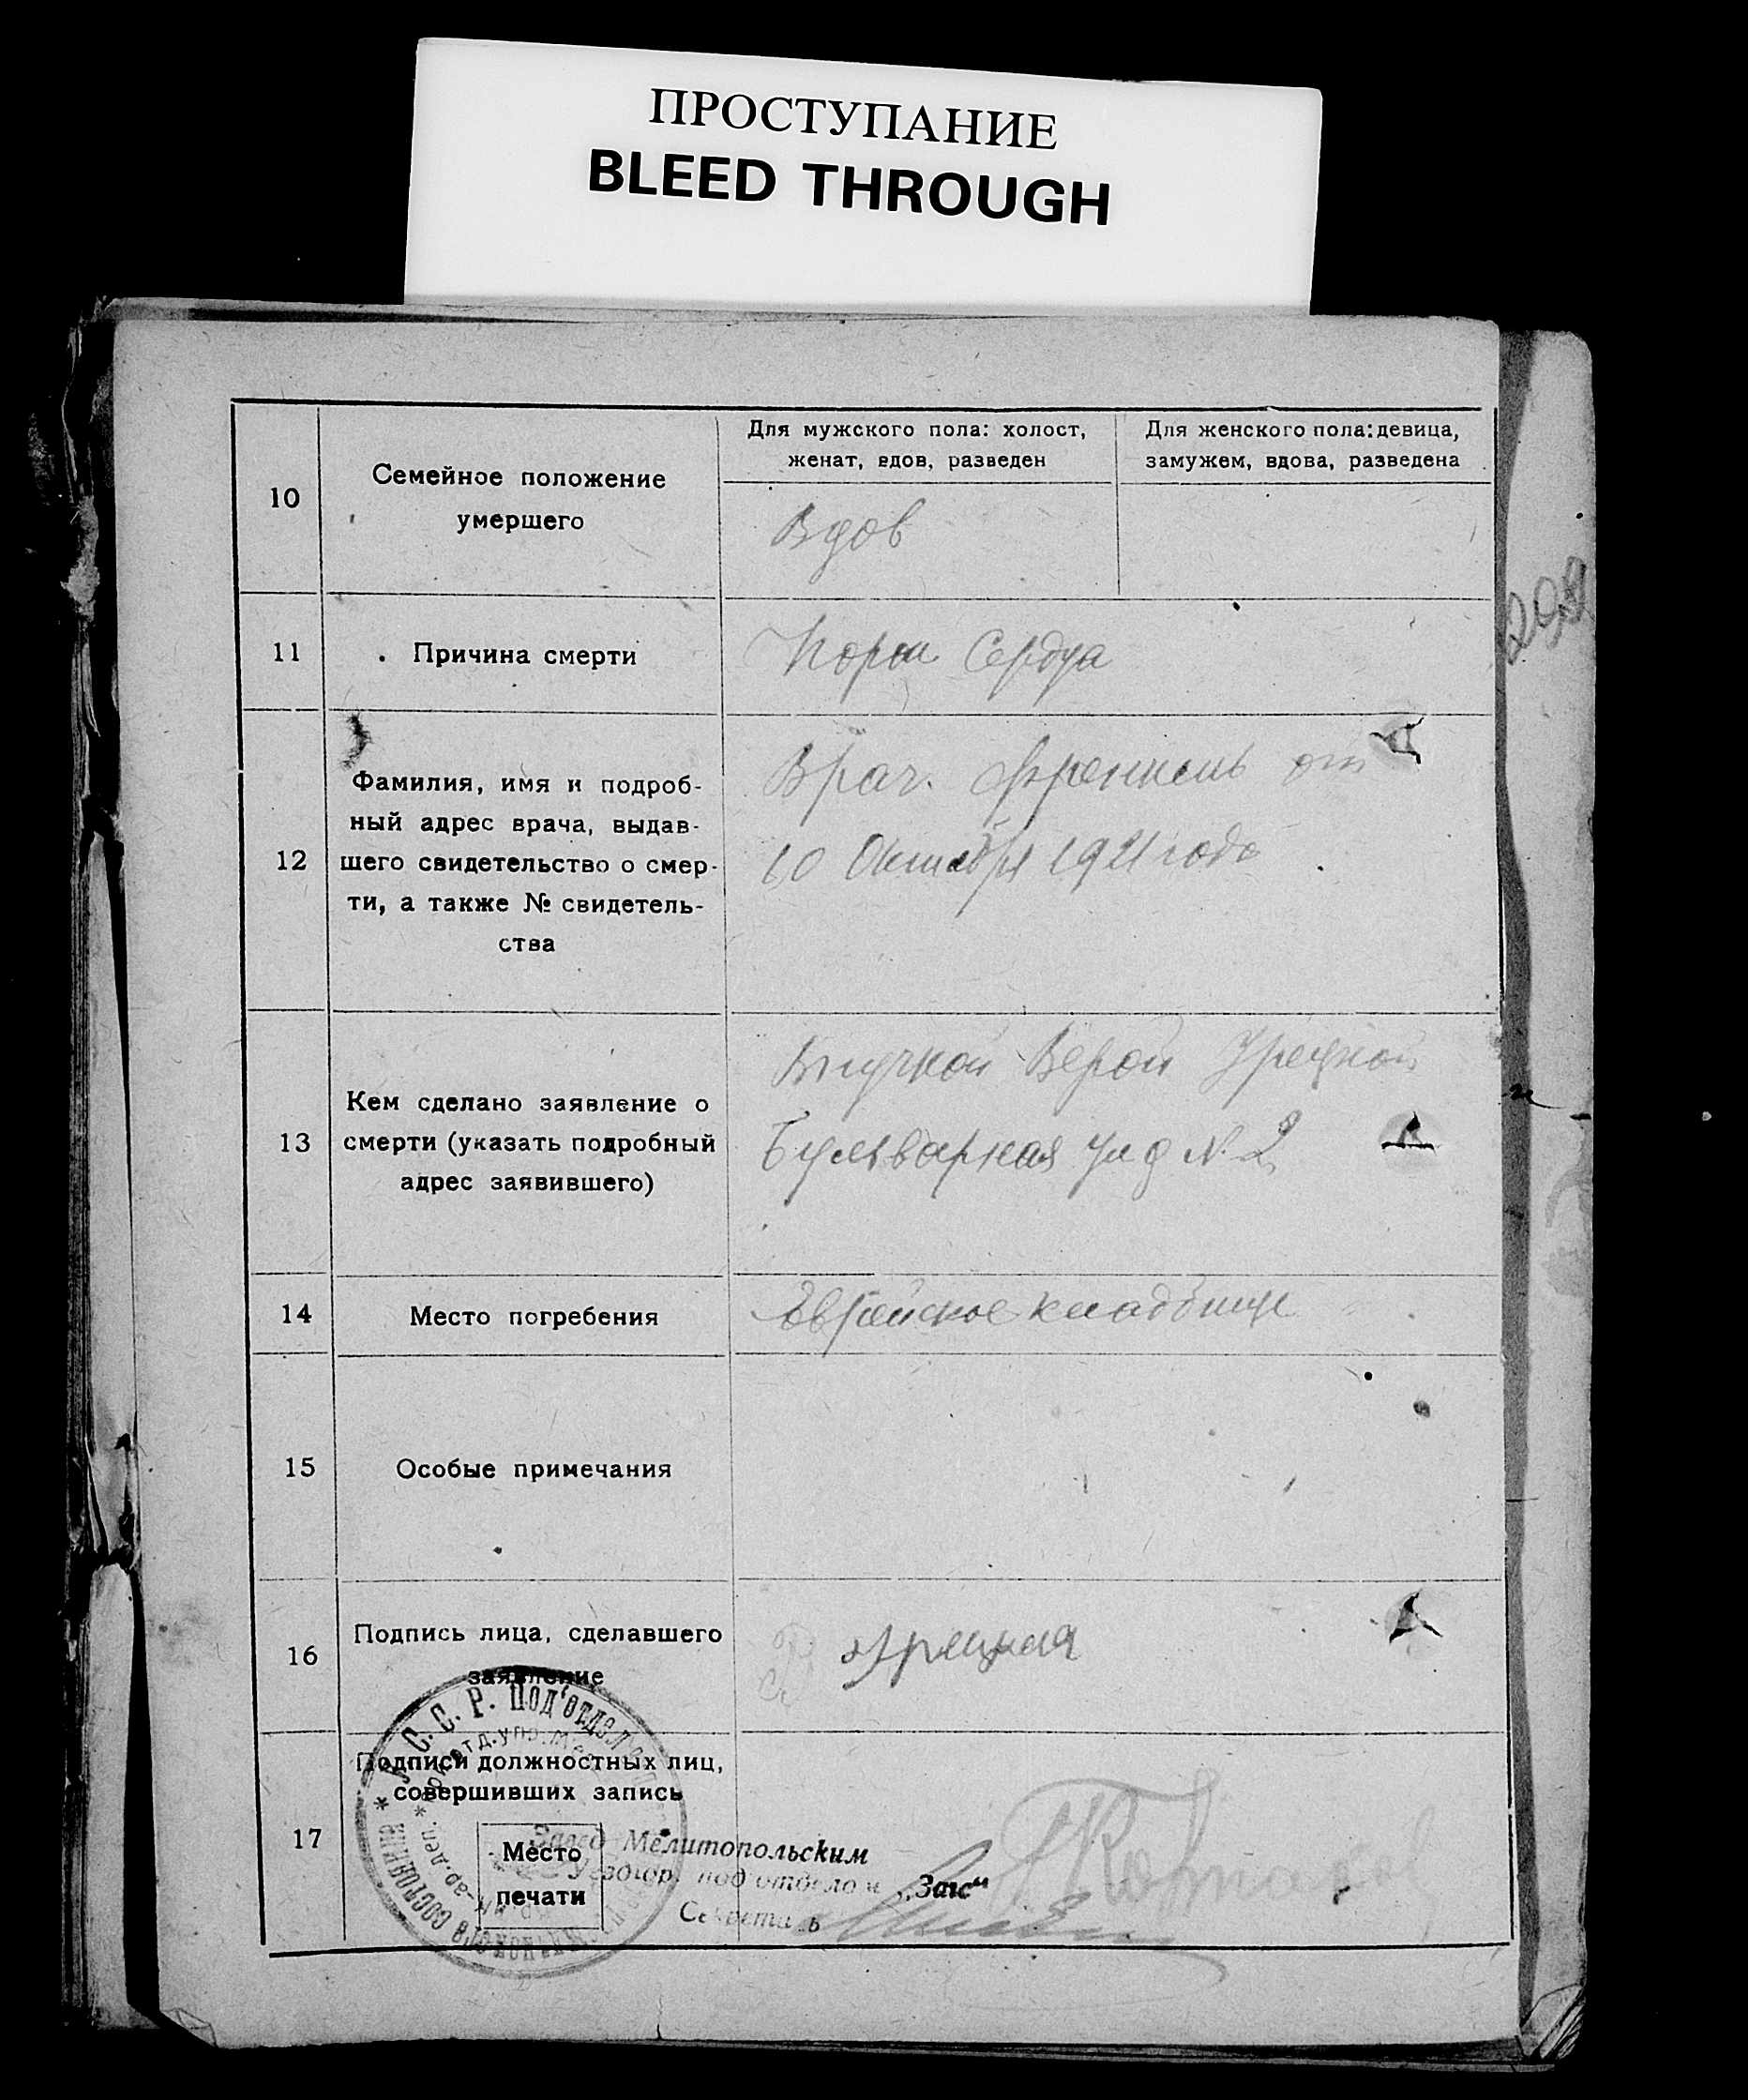 ПРОСТУПАНИЕ
BLEED THROUGH
10
Семейное положение
умершего
Для мужского пола: холост,
женат, вдов, разведен
Для женского пола: девица,
замужем, вдова, разведена
Вдов
11
Причина смерти
Порок Сердца
12
Фамилия, имя и подроб-
ный адрес врача, выдав-
шего свидетельство о смер-
ти, а также № свидетель-
ства
Врач. Френкель от
10 Октября 1921 года
13
Кем сделано заявление о
смерти (указать подробный
адрес заявившего)
Внучкой Верой
Бульварная ул д № 2
14
Место погребения
Еврейское кладбище
15
Особые примечания
16
Подпись лица, сделавшего
заявление
17
Подписи должностных лиц,
совершивших запись
Место
печати
У. С. С. Р. Под'отдел
состояния
Завед Мелитопольским
под'отделом „Загс"
Секретарь